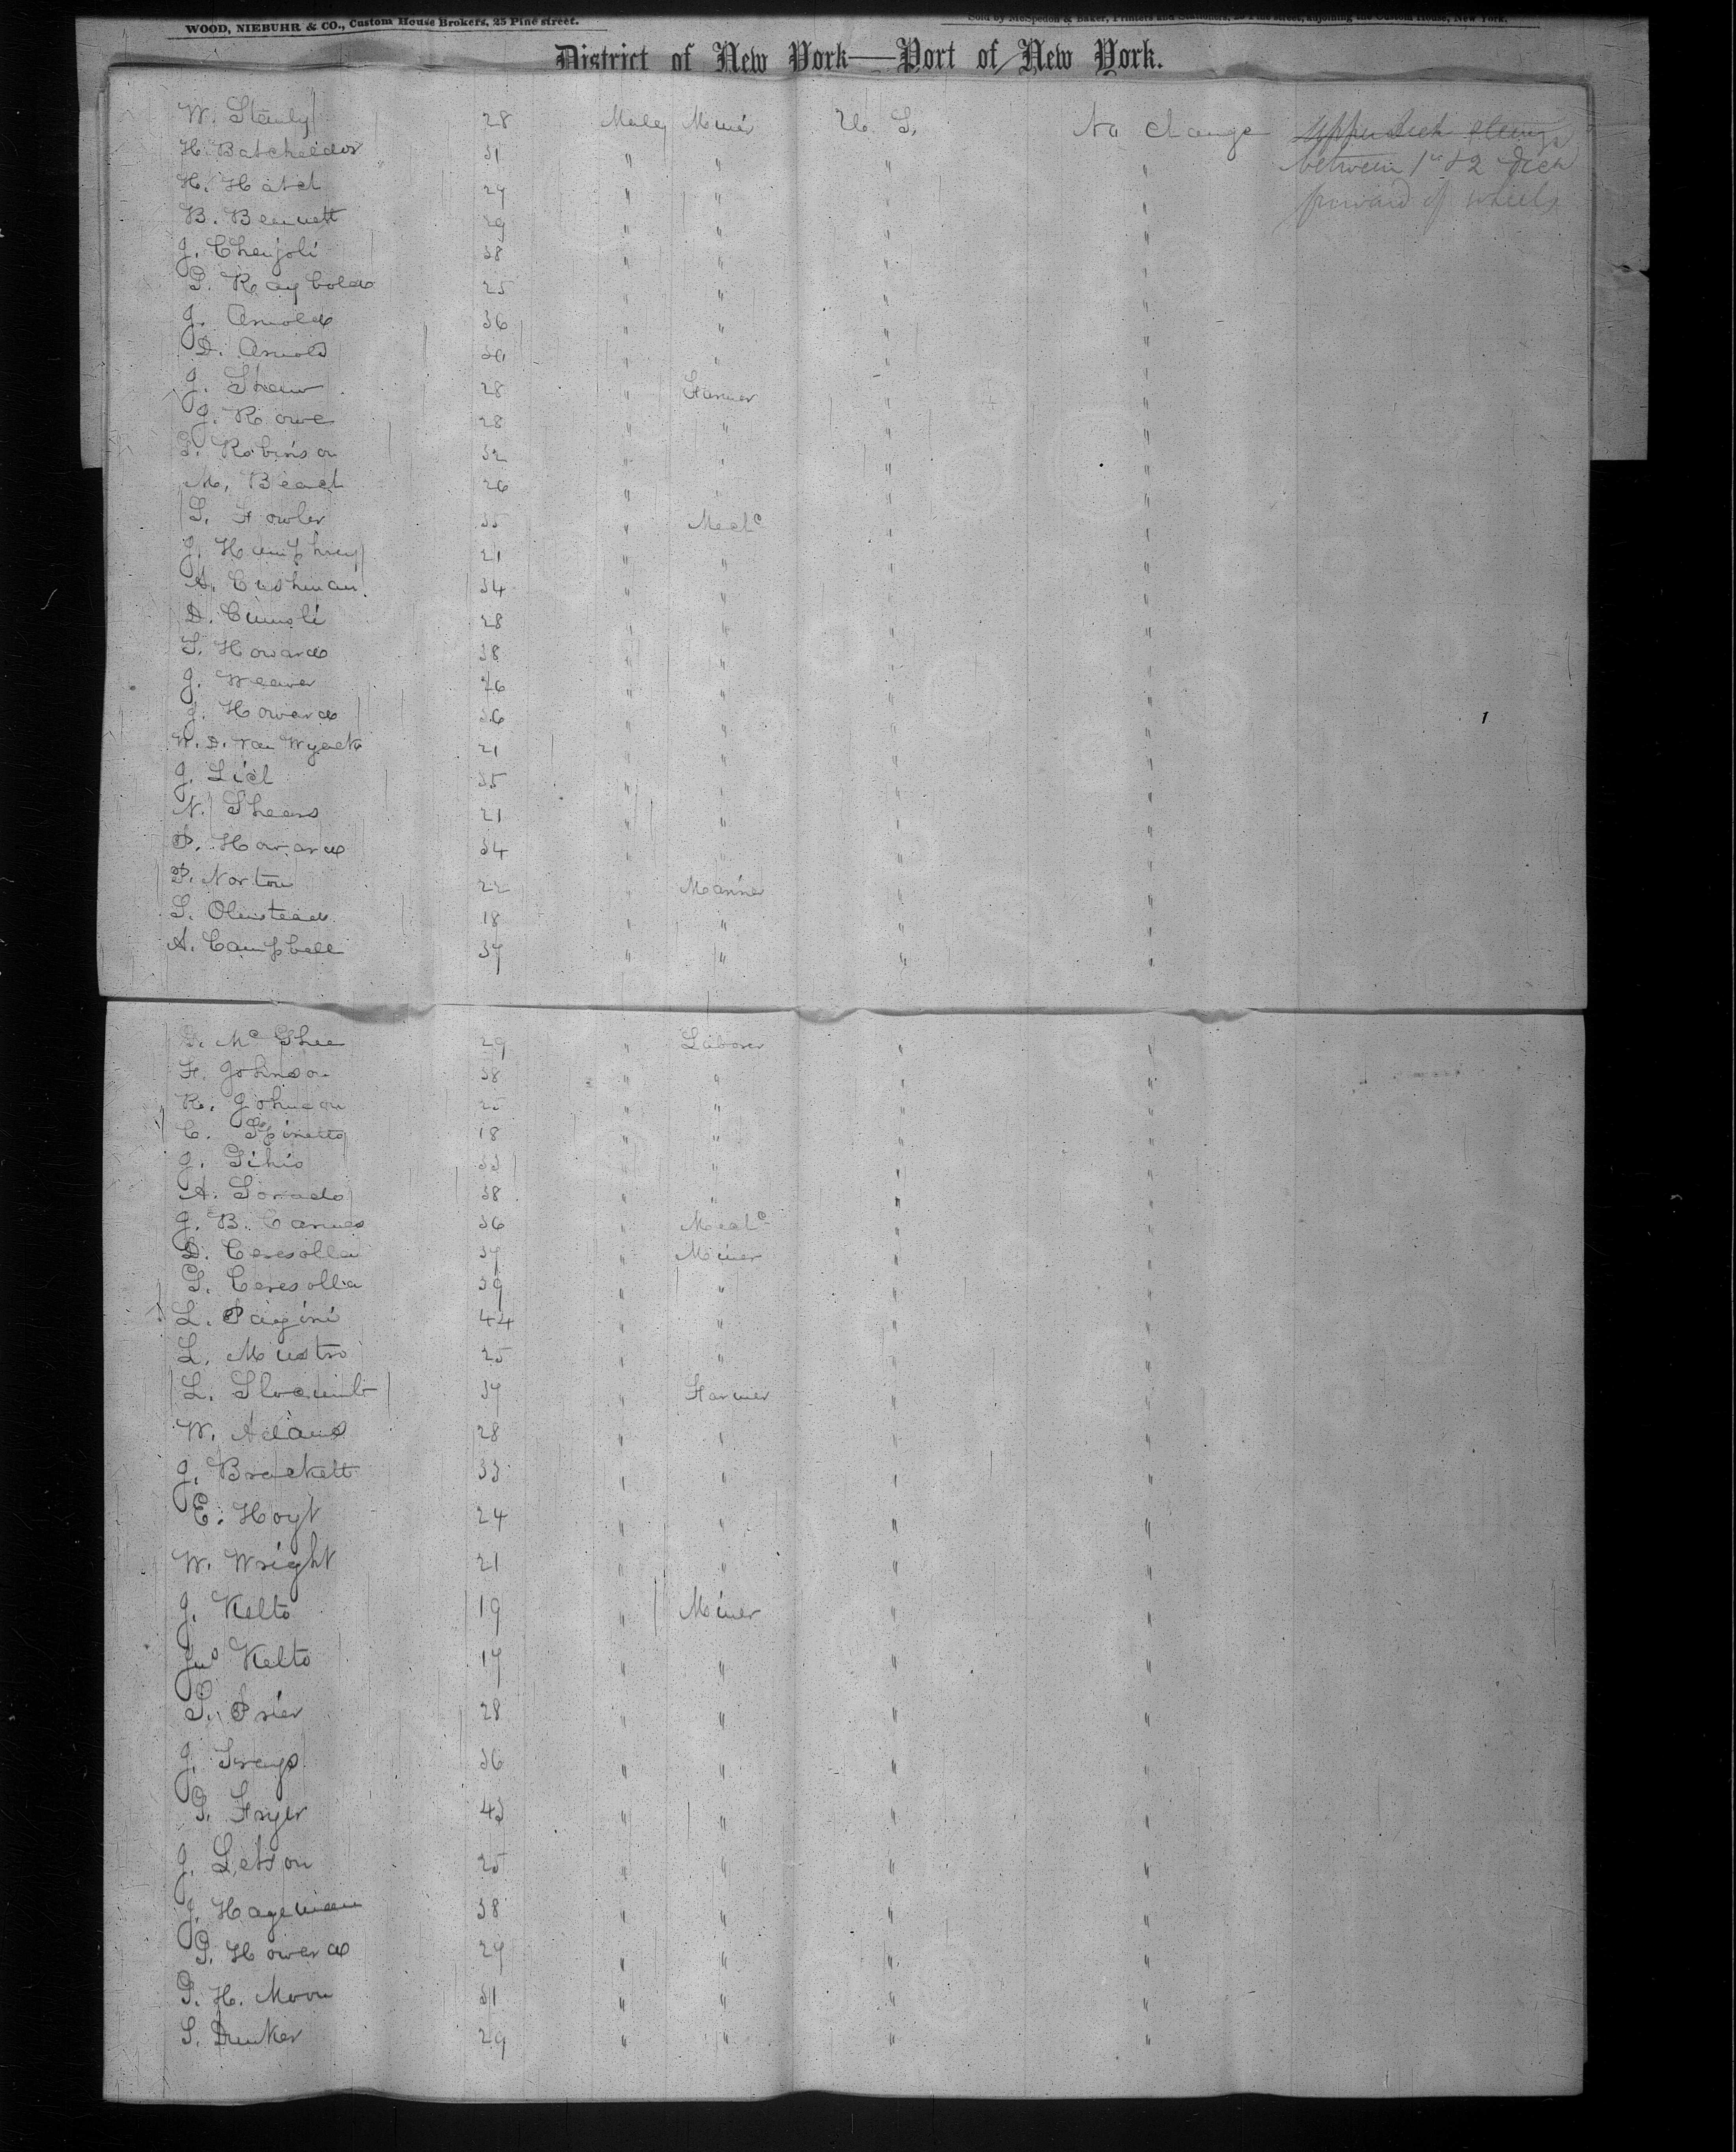 WOOD, NIEBUHR & CO., Custom House Brokers, 25 Pine street.
Sold by McSpedon & Baker, Printers and Stationers, 25 Pine street, adjoining the Custom House, New York.
District of New York—Port of New York.
W. Stanly 28 Male Miner U. S. No change Upper deck
H. Batcheldor 31 " " " " between 1st & 2 Deck
H. Hatch 27 " " " " forward of wheels
B. Bennett 29 " " " "
J. 38 " " " "
S. Raybold 25 " " " "
J. Arnold 36 " " " "
D. Arnold 30 " " " "
J. Shaw 28 " Farmer " "
J. Rowe 28 " " " "
S. Robinson 32 " " " "
M. Beach 26 " " " "
S. Fowler 35 " Mechc " "
J. Humphrey 21 " " " "
A. Cushman 34 " " " "
D. 28 " " " "
S. Howard 38 " " " "
J. Weaver 26 " " " "
J. Howard 36 " " " "
W. D. Van Wyack 21 " " " "
J. 35 " " " "
N. Shears 21 " " " "
P. Howard 34 " " " "
P. Norton 22 " Mariner " "
S. Olmstead 18 " " " "
A. Campbell 37 " " " "
D. Mc Ghee 29 " Laborer " "
F. Johnson 38 " " " "
R. Johnson 25 " " " "
C. Spinetto 18 " " " "
J. 33 " " " "
A. 38 " " " "
J. B. Carnes 36 " Mechc " "
D. Ceresolla 37 " Miner " "
S. Ceresolla 39 " " " "
L. Pagini 44 " " " "
L. Mustro 25 " " " "
L. Slocumb 37 " Farmer " "
W. Adams 28 " " " "
J. Brackett 33 " " " "
E. Hoyt 24 " " " "
W. Wright 21 " " " "
J. Kelto 19 " Miner " "
Jno Kelto 17 " " " "
S. Prier 28 " " " "
J. 36 " " " "
S. Fryer 43 " " " "
J. Letson 25 " " " "
J. Hageman 38 " " " "
S. Howard 27 " " " "
P. H. Moon 31 " " " "
S. Dunker 29 " " " "